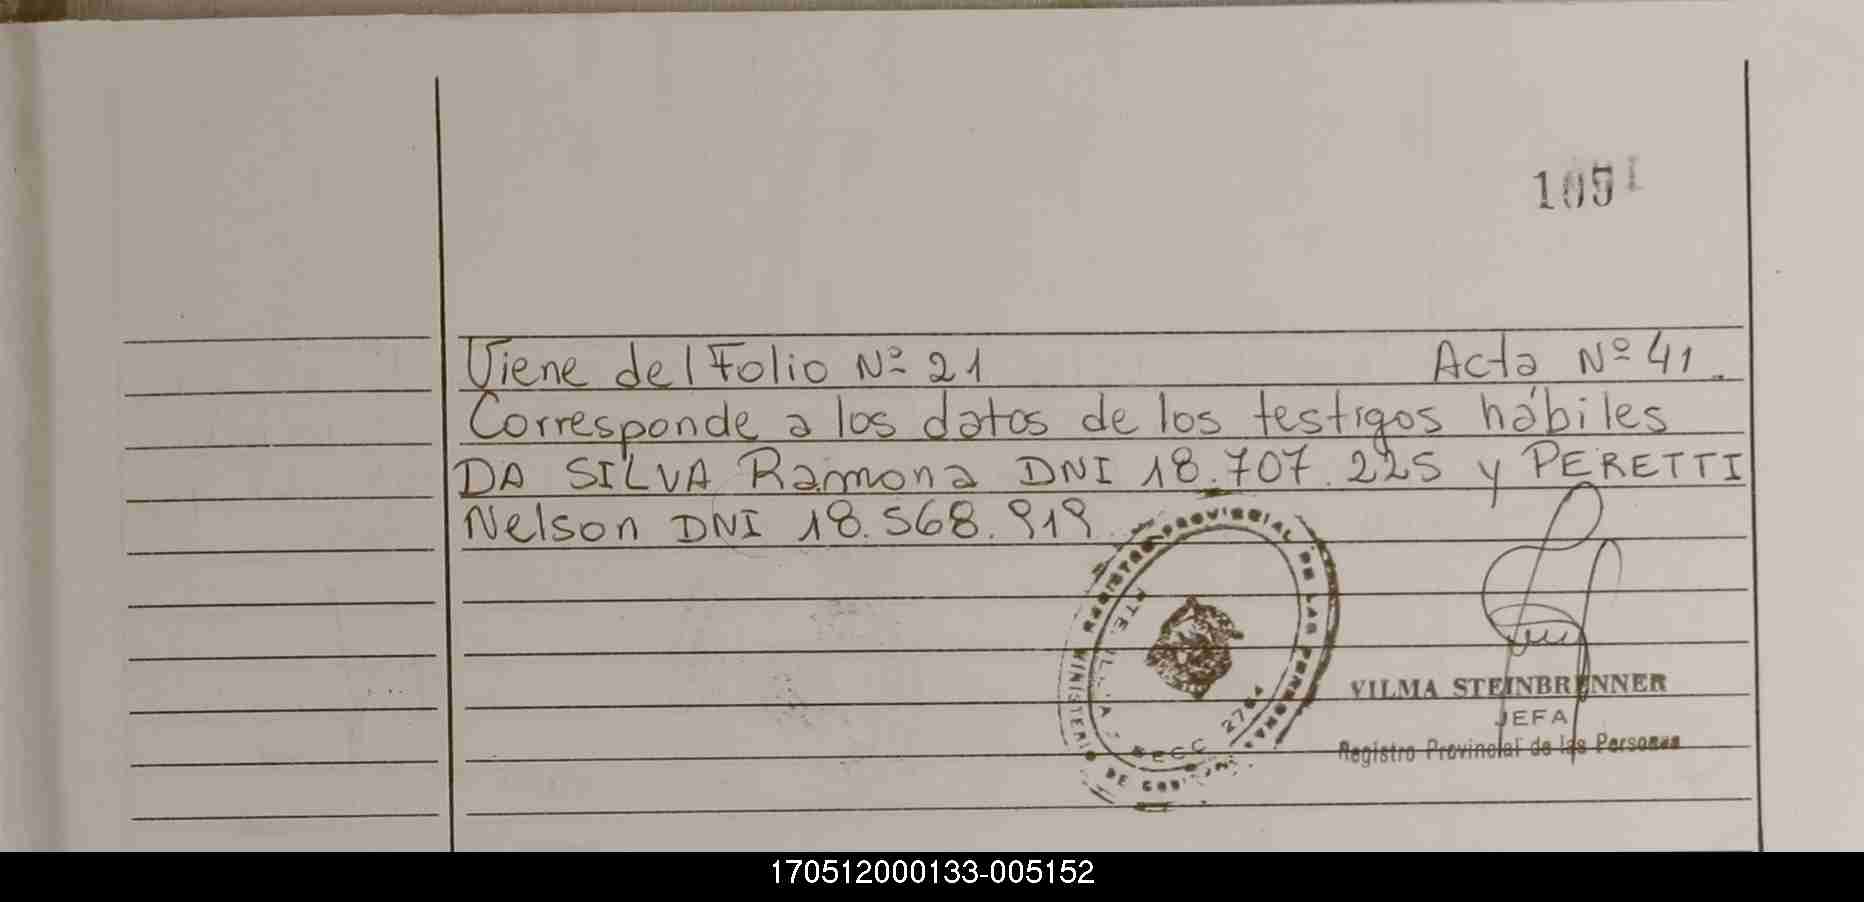 Viene del Folio Nº 21 Acta Nº 41.
Corresponde a los datos de los testigos hábiles
DA SILVA Ramona DNI 18.707.225 y PERETTI
Nelson DNI 18.568.919
REGISTRO PROVINCIAL DE LAS PERSONAS
MINISTERIO DE
SECC
VILMA STEINBRENNER
JEFA
Registro Provincial de las Personas
170512000133-005152